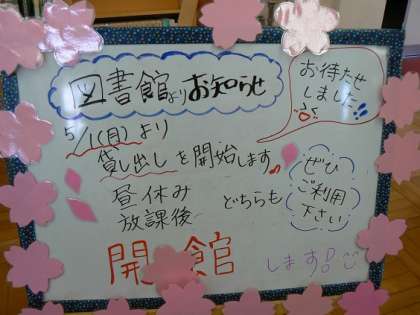 図書館よりお知らせ
お待たせ
しました
5/1(月)より
貸し出しを開始します
昼休み
放課後
どちらも
ぜひ
ご利用
下さい
開館
します!